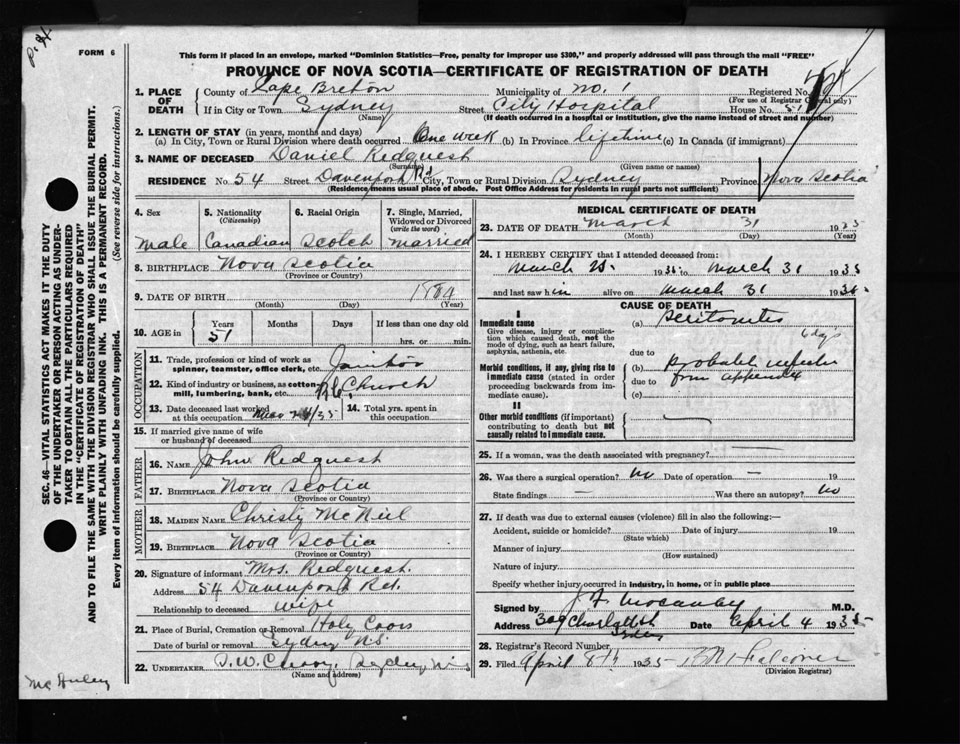 P. 4
FORM 6
This form if placed in an envelope, marked "Dominion Statistics—Free, penalty for improper use $300," and properly addressed will pass through the mail "FREE"
PROVINCE OF NOVA SCOTIA—CERTIFICATE OF REGISTRATION OF DEATH
1. PLACE OF DEATH County of Cape Breton Municipality of No. 1 Registered No.
(For use of Registrar General only)
If in City or Town Sydney Street City Hospital House No.
(Name) (If death occurred in a hospital or institution, give the name instead of street and number)
2. LENGTH OF STAY (in years, months and days)
(a) In City, Town or Rural Division where death occurred One week (b) In Province lifetime (c) In Canada (if immigrant)
3. NAME OF DECEASED Daniel Redquest
(Surname) (Given name or names)
RESIDENCE No 54 Street Davenport Rd City, Town or Rural Division Sydney Province Nova Scotia
(Residence means usual place of abode. Post Office Address for residents in rural parts not sufficient)
4. Sex 5. Nationality (Citizenship) 6. Racial Origin 7. Single, Married, Widowed or Divorced (write the word)
male Canadian Scotch married
8. BIRTHPLACE Nova Scotia
(Province or Country)
9. DATE OF BIRTH
(Month) (Day) (Year)
10. AGE in Years Months Days If less than one day
51 hrs. or min.
OCCUPATION
11. Trade, profession or kind of work as spinner, teamster, office clerk, etc. Janitor
12. Kind of industry or business, as cotton mill, lumbering, bank, etc. Church
13. Date deceased last worked at this occupation 14. Total yrs. spent in this occupation
15. If married give name of wife or husband of deceased
FATHER
16. NAME John Redquest
17. BIRTHPLACE Nova Scotia
(Province or Country)
MOTHER
18. MAIDEN NAME Christy McNeil
19. BIRTHPLACE Nova Scotia
(Province or Country)
20. Signature of informant Mrs. Redquest.
Address 54 Davenport Rd.
Relationship to deceased Wife
21. Place of Burial, Cremation or Removal Holy Cross
Date of burial or removal Sydney N.S.
22. UNDERTAKER Sydney N.S.
(Name and address)
MEDICAL CERTIFICATE OF DEATH
23. DATE OF DEATH March 31 1935
(Month) (Day) (Year)
24. I HEREBY CERTIFY that I attended deceased from:
March 1935 to March 31 1935
and last saw him alive on March 31 1935
CAUSE OF DEATH
I
Immediate cause (a) Peritonitis
Give disease, injury or complication which caused death, not the mode of dying, such as heart failure, asphyxia, asthenia, etc.
6 dys
due to
Morbid conditions, if any, giving rise to immediate cause (stated in order proceeding backwards from immediate cause).
(b)
due to from
(c)
II
Other morbid conditions (if important) contributing to death but not causally related to immediate cause.
25. If a woman, was the death associated with pregnancy?
26. Was there a surgical operation? No Date of operation — 19
State findings — Was there an autopsy? No
27. If death was due to external causes (violence) fill in also the following:—
Accident, suicide or homicide? Date of injury 19
(State which)
Manner of injury
(How sustained)
Nature of injury
Specify whether injury occurred in industry, in home, or in public place
Signed by M.D.
Address 309 Charlotte St Sydney Date April 4 1935
28. Registrar's Record Number
29. Filed April 8th 1935
(Division Registrar)
SEC. 46—VITAL STATISTICS ACT MAKES IT THE DUTY
OF THE UNDERTAKER OR PERSON ACTING AS UNDER-
TAKER TO OBTAIN ALL THE PARTICULARS REQUIRED
IN THE "CERTIFICATE OF REGISTRATION OF DEATH"
AND TO FILE THE SAME WITH THE DIVISION REGISTRAR WHO SHALL ISSUE THE BURIAL PERMIT.
WRITE PLAINLY WITH UNFADING INK. THIS IS A PERMANENT RECORD.
Every item of information should be carefully supplied. (See reverse side for instructions.)